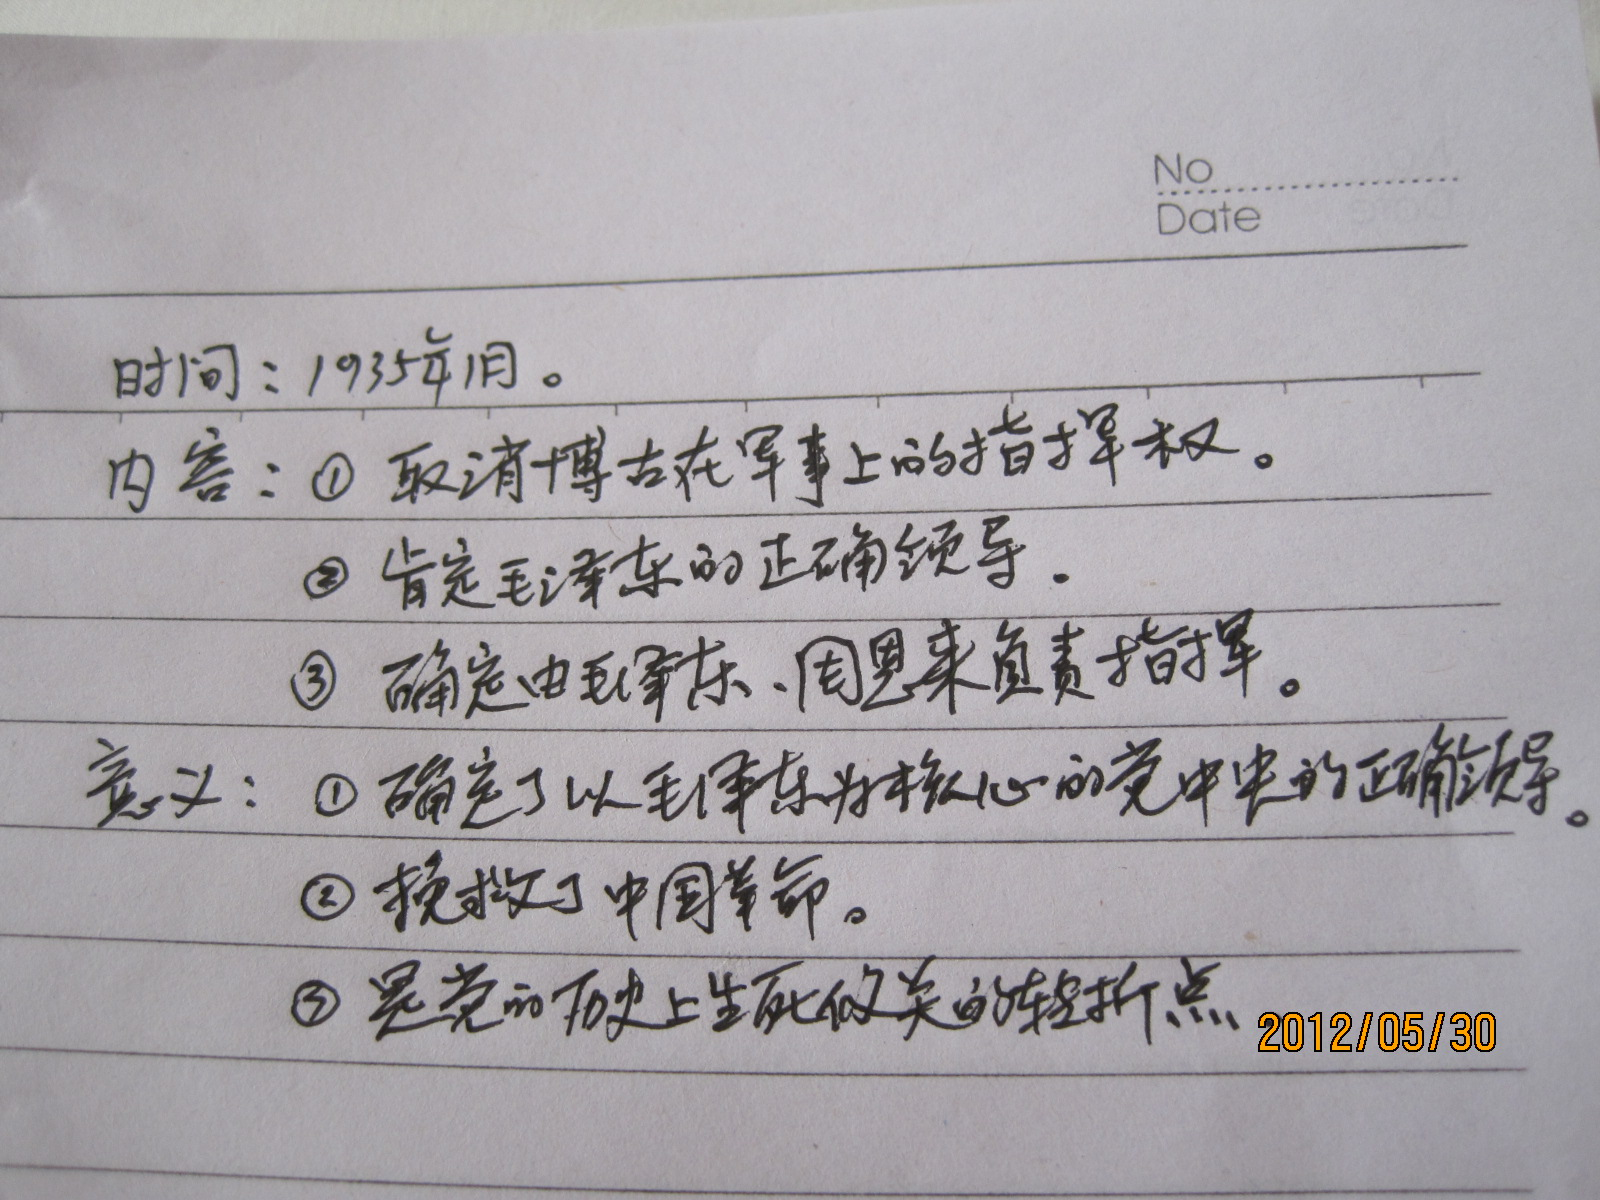 No
Date
时间：1935年1月。
内容：① 取消博古在军事上的指挥权。
② 肯定毛泽东的正确领导.
③ 确定由毛泽东、周恩来负责指挥。
意义：① 确定了以毛泽东为核心的党中央的正确领导。
② 挽救了中国革命。
③ 是党的历史上生死攸关的转折点
2012/05/30